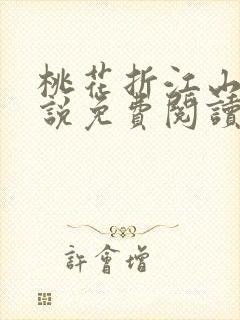 桃花折江山
說免費閱讀
許會增